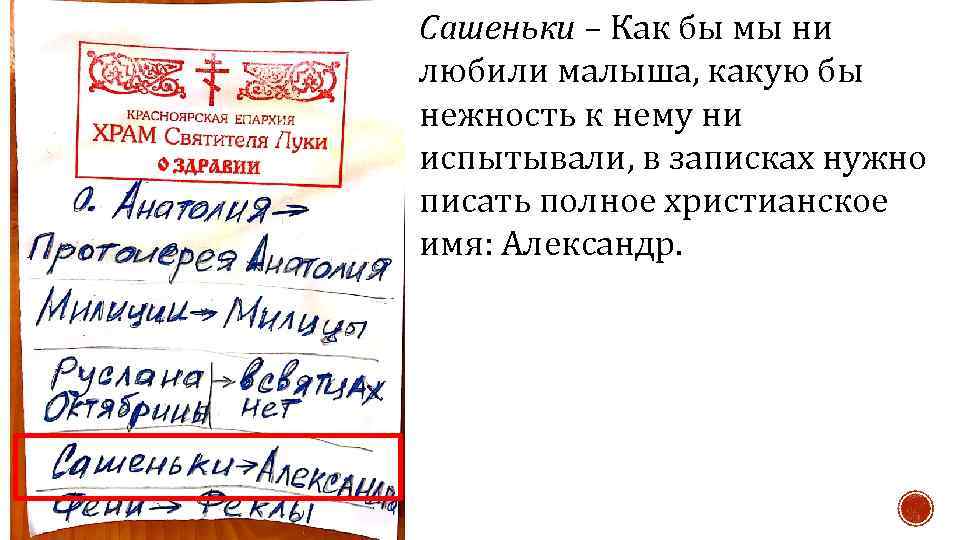 КРАСНОЯРСКАЯ ЕПАРХИЯ
ХРАМ Святителя Луки
О ЗДРАВИИ
о. Анатолия →
Протоиерея Анатолия
Милиции → Милицы
Руслана → в святцах
Октябрины нет
Сашеньки → Александра
Фени → Феклы
Сашеньки – Как бы мы ни
любили малыша, какую бы
нежность к нему ни
испытывали, в записках нужно
писать полное христианское
имя: Александр.